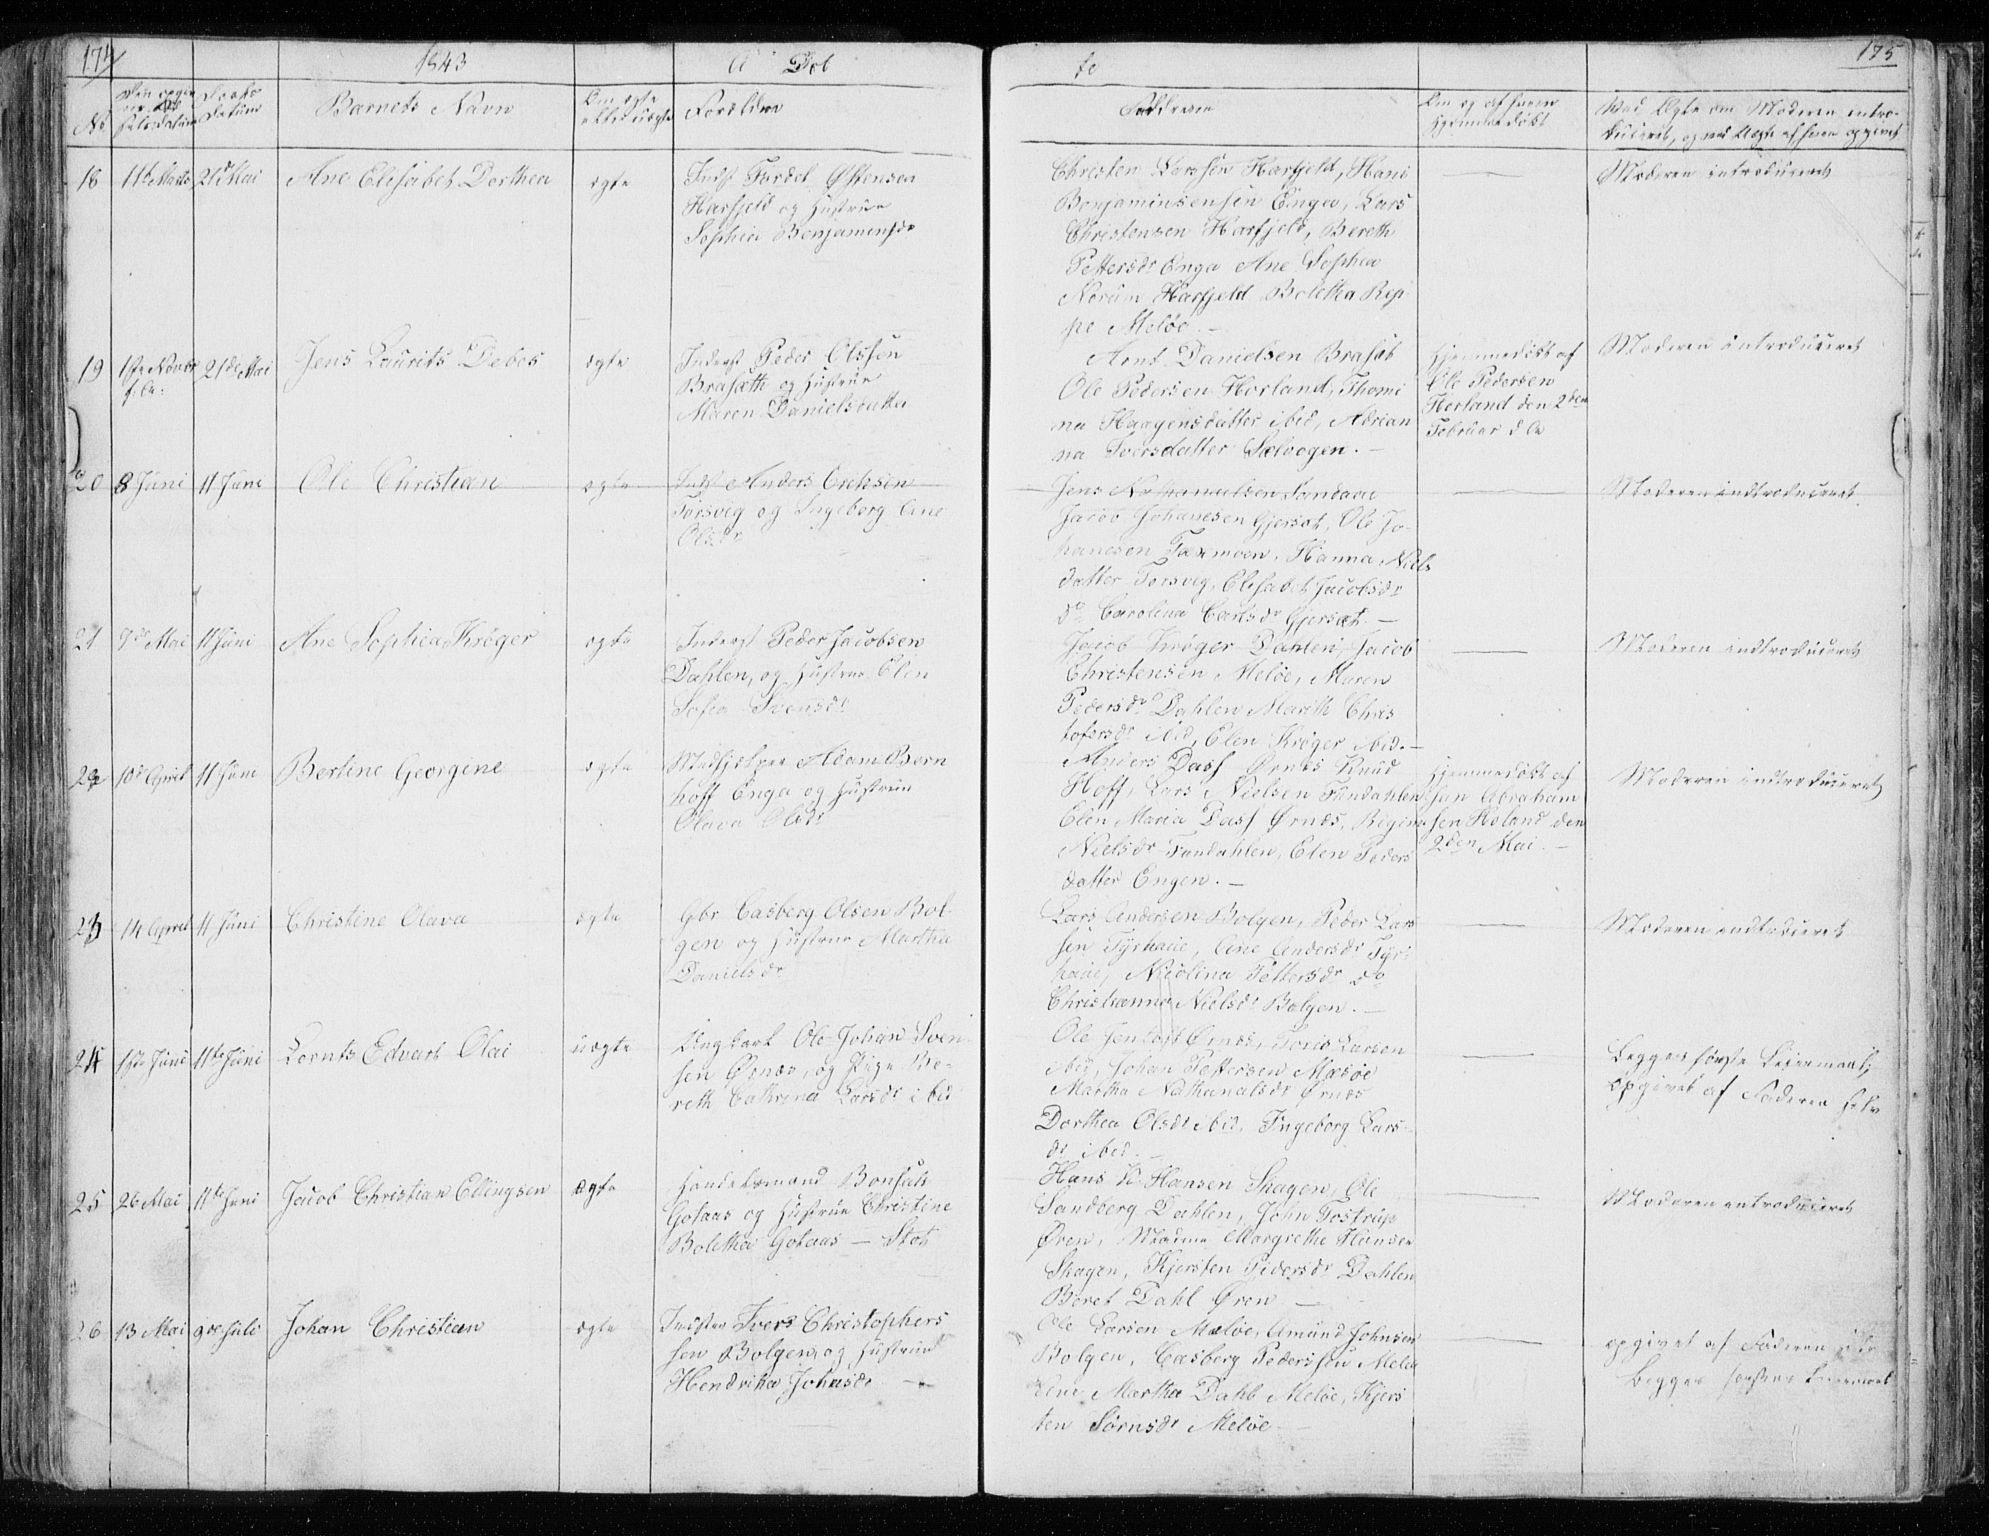 174
1843
Døb
te
175
No
Datum
Barnets Navn
Om ægte
eller uægte
Forældrene
Faddrene
Om og af hvem
hjemmedøbt
Ved Ægte om Moderen intro-
duceret, og ved Uægte af hvem opgivet
18
11te Marts
21de Mai
Ane Elisabet Dorthea
ægte
Inds Fordel Østensen
Harfjeld og Hustrue
Sophia Benjaminsdr
Christen Larssen Harfjeld, Hans
Benjaminsensen Enga, Lars
Christensen Harfjeld, Bereth
Pettersdr Enga Ane Sophia
Norum Harfjeld Boletha Rep-
pe Meløe. —
Moderen introduceret
19
21de Mai
Jens Laurits Debes
ægte
Inderst Peder Olssen
Brasætte og Hustrue
Maren Danielsdatter
Arnt Danielsen Brasæt
Ole Pedersen Horland, Thomi
na Haagensdatter ibid, Adrian
na Iversdatter Selvogen. —
Hjemmedøbt af
Ole Pedersen
Horland den 2den
Februar d. A.
Moderen introduceret
20
8 Juni
11 Juni
Ole Christian
ægte
Inds Anders Erichsen
Torsvig og Ingeborg Ane
Olsdr
Jens Nathanaelsen Sandaae
Jacob Johanesen Gjersæt, Ole Jo-
hanesen Faxmoen, Hanna Niels
datter Torsvig, Elisabet Jacobsdr
do Carolina Carlsdr Gjersæt. —
Moderen indtroduceret
21
7de Mai
11 Juni
Ane Sophia Krøger
ægte
Inderst Peder Jacobsen
Dahlen, og Hustrue Elen
Sofia Svensdr
Jacob Krøger Dahlen, Jacob
Christensen, Meløe, Maren
Pedersdr Dahlen Marith Chris
tofersdr ibid, Elen Krøger ibid. —
Moderen indtroduceret
22
10de April
11 Juni
Bertine Georgine
ægte
Medhjelper Adam Bern
hoff Enga og Hustrue
Olava Olsdr
Anders Dass Ørnes Knud
Hoff, Lars Nielsen Fondahlen
Elen Maria Dass Ørnes,
Nielsdr Fondahlen, Elen Peders
datter Engen. —
Hjemmedøbt af
Jan Abraham
sen Holand den
2den Mai. —
Moderen indtroduceret
23
14 April
11 Juni
Christine Olava
ægte
Gbr Casberg Olsen Bol-
gen og Hustrue Martha
Danielsdr
Lars Andersen Bolgen, Peder Lars
sen Tyrhaue, Ane Andersdr Tyr-
haue, Nicolina Pettersdr do
Christianna Nielsdr Bolgen. —
Moderen indtroduceret
24
1ste Juni
11te Juni
Lornts Edvart Olai
uægte
Ungkarl Ole Johan Sven
sen Ørnes, og Pige Be-
reth Cathrina Larsdr ibid
Ole Jentoft Ørnes, Joris Larsen
ibid, Johan Pettersen Mesøe
Martha Nathanalsdr Ørnes
Dorthea Olsdr ibid, Ingeborg Lars-
dr ibid. —
Begges første Leiermaal;
opgivet af Faderen selv
25
26 Mai
11te Juni
Jacob Christian Ellingsen
ægte
Handelsmand Bonsach
Gotaas og Hustrue Christine
Boletha Gotaas — Stot
Hans K. Hansen Skagen, Ole
Sandberg Dahlen, John Tostrup
Øren, Madme Margrethe Hansen
Skagen, Kjersten Pedersdr Dahlen
Beret Dahl Øren —
Moderen introduceret
26
13 Mai
9de Juli
Johan Christian
ægte
Inderst Ivers Christophers
sen Bolgen, og Hustrue
Hendrika Johnsdr —
Ole Larsen Meløe, Amund Johnsen
Bolgen, Casberg Pederssen Meløe
Ane Martha Dahl Meløe, Kjers
ten Sørnsdr Meløe —
opgivet af Faderen
begges første Leiermaal